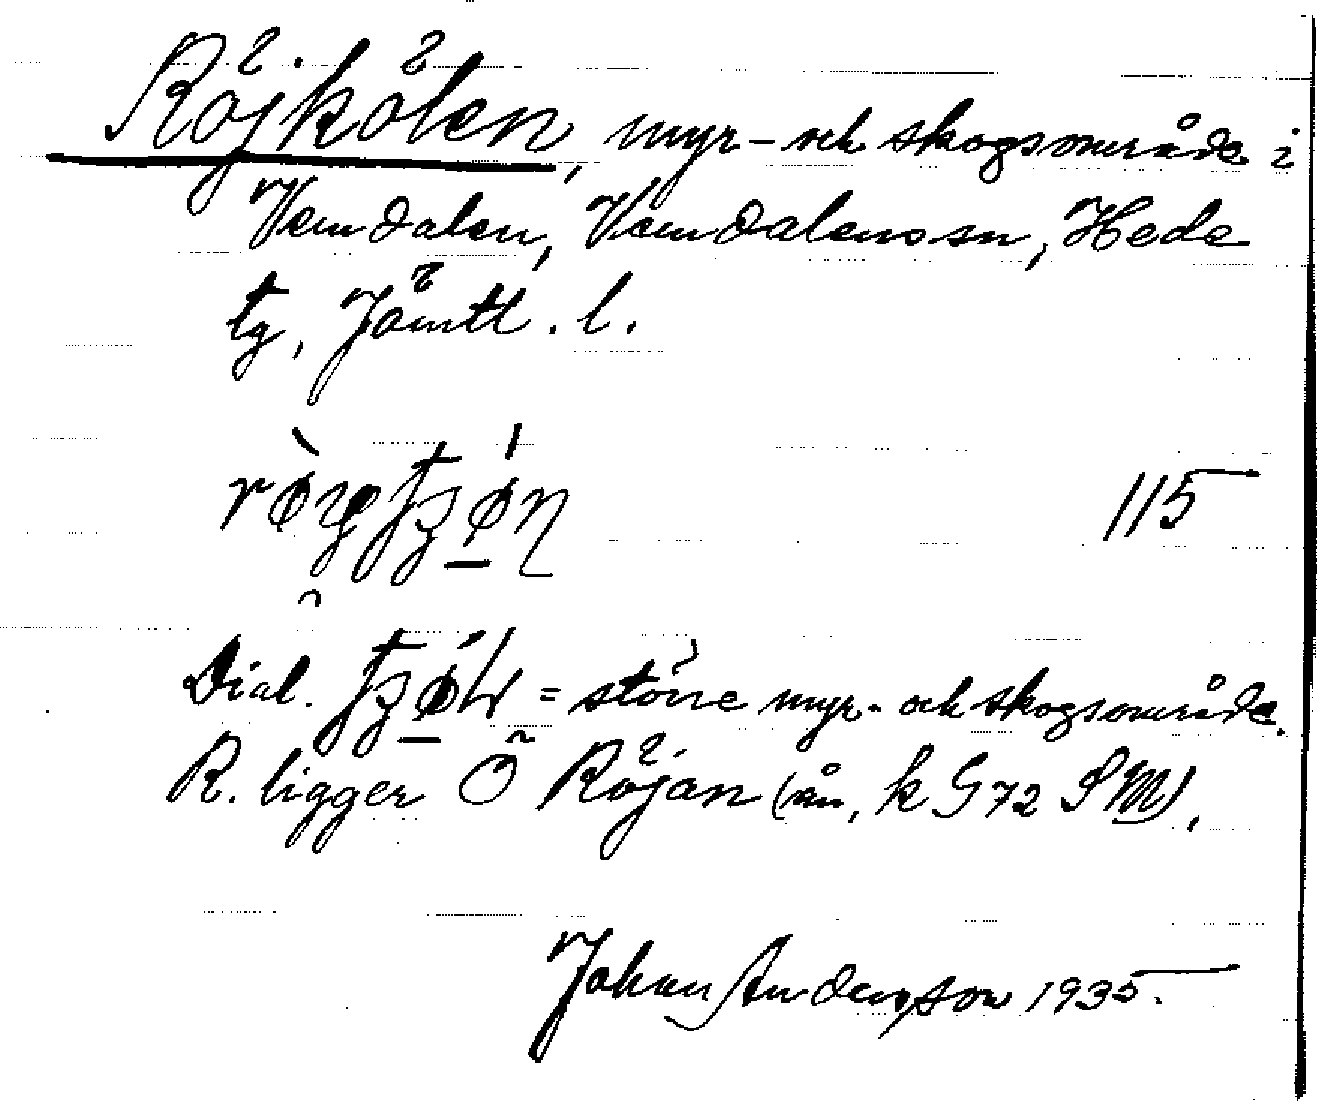 Röjkölen, myr- och skogsområde i
Vemdalen, Vemdalens sn, Hede
tg, Jämtl. l.
115
Dial. = större myr- och skogsområde.
R. ligger Ö Röjan (ån, k G 72 SM).
Johan Andersson 1935.